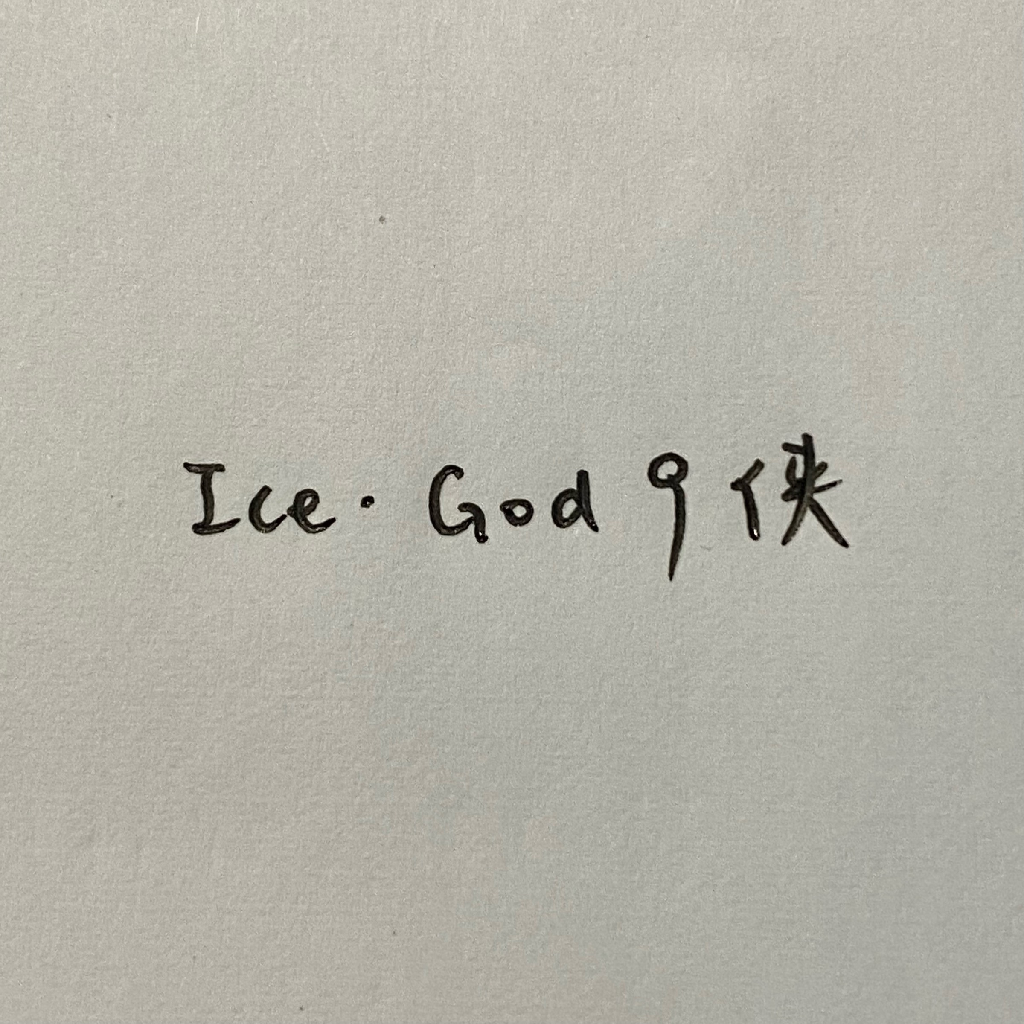 Ice·God 9侠